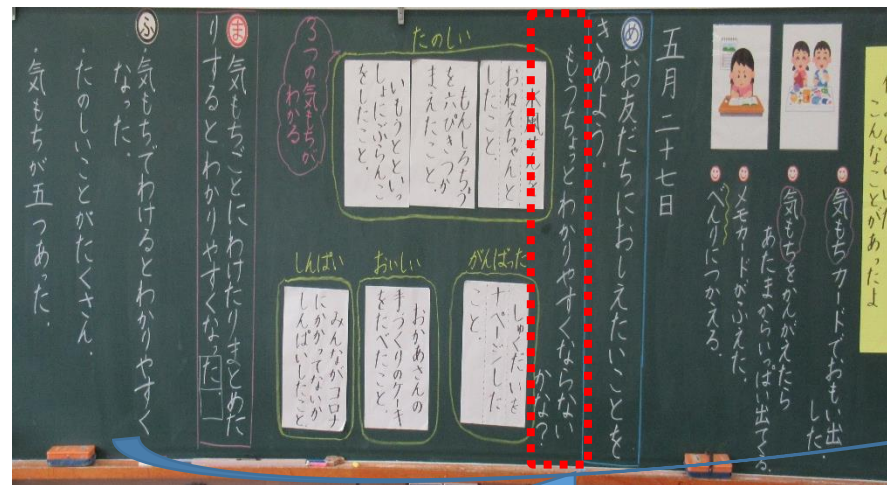 こんなことがあったよ
気もちカードでおもい出
した。
気もちをかんがえたら
あたまからいっぱい出てくる。
メモカードがふえた。
べんりにつかえる。
五月二十七日
め お友だちにおしえたいことを
きめよう。
もうちょっとわかりやすくならない
かな?
たのしい
水風せんを
おねえちゃんと
したこと。
もんしろちょう
を六ぴきつか
まえたこと。
いもうとといっ
しょにぶらんこ
をしたこと。
3つの気もちが
わかる
がんばった
しゅくだいを
ナページした
こと。
おいしい
おかあさんの
手づくりのケーキ
をたべたこと。
しんぱい
みんながコロナ
にかかってないか
しんぱいしたこと
ま 気もちごとにわけたりまとめた
りするとわかりやすくなった。
ふ 気もちでわけるとわかりやすく
なった。
・たのしいことがたくさん。
・気もちが五つあった。